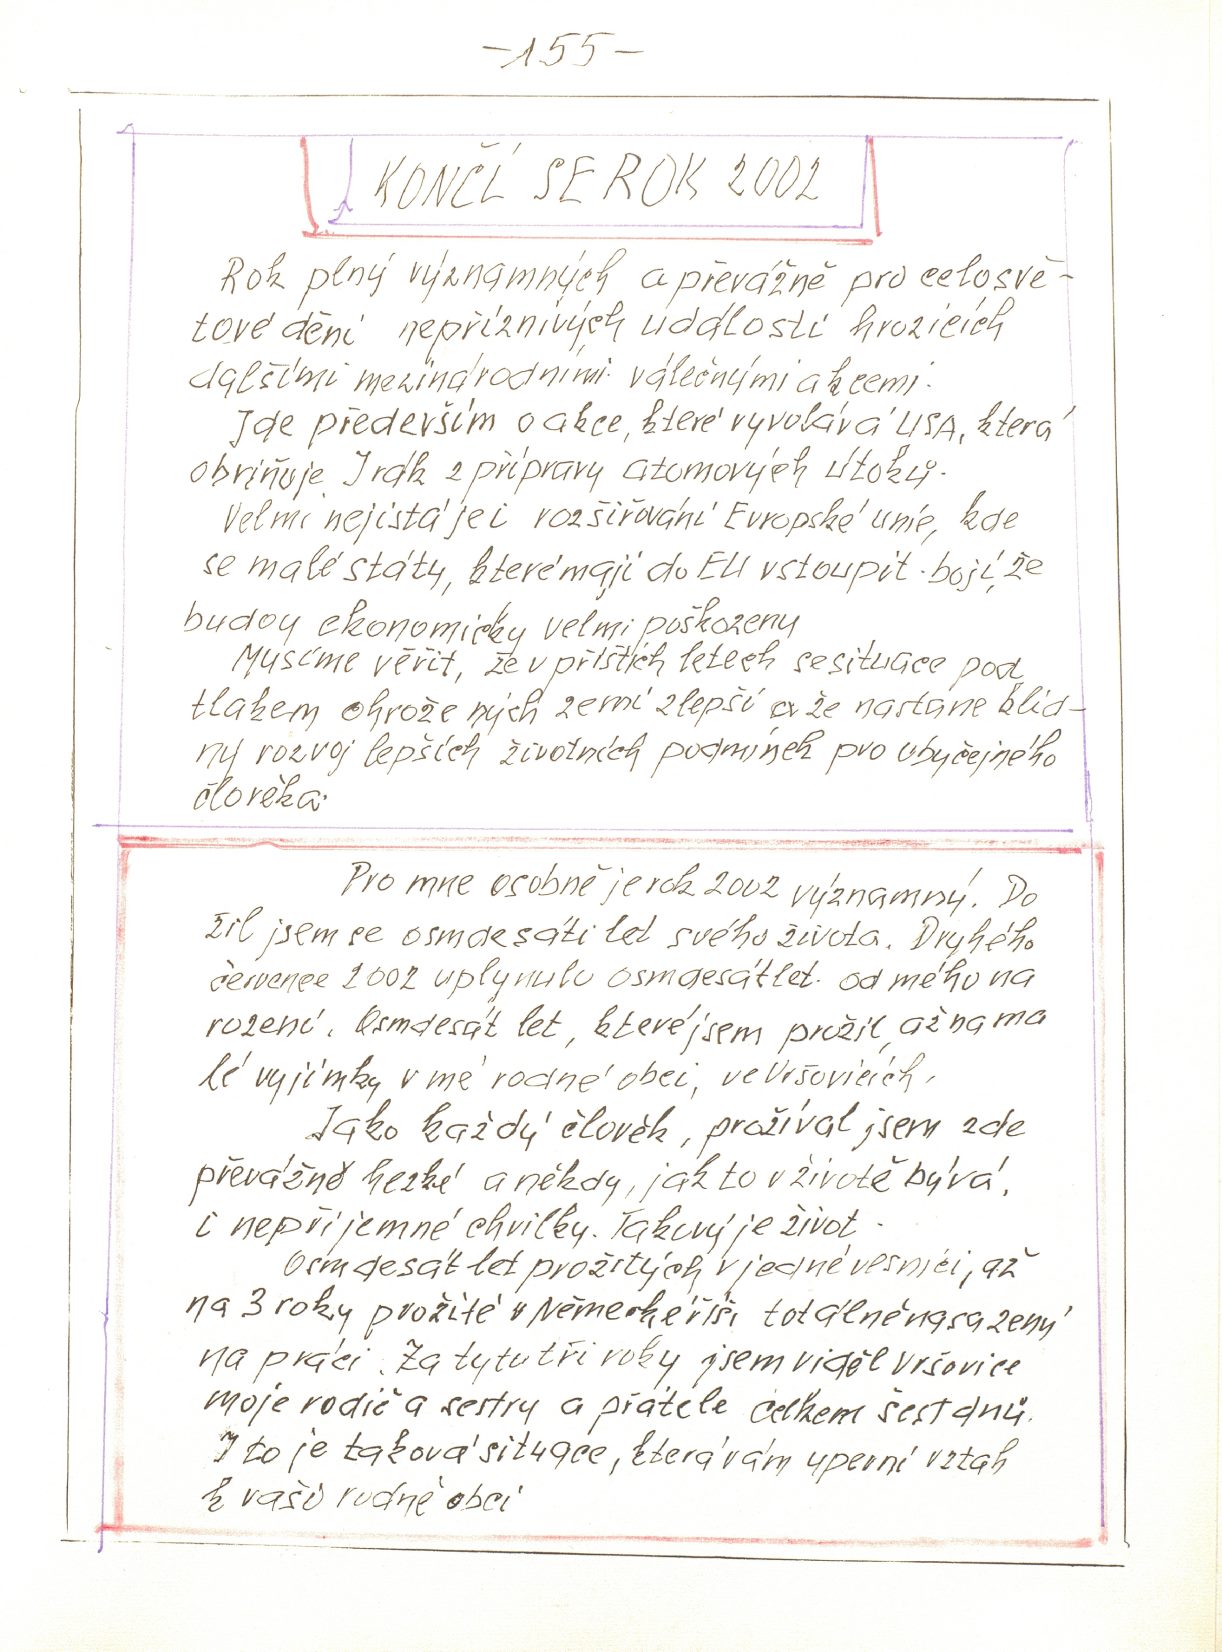 -155-
KONČÍ SE ROK 2002
Rok plný významných a převážně pro celosvě-
tové dění nepříznivých událostí hrozících
dalšími mezinárodními válečnými akcemi.
Jde především o akce, které vyvolává USA, která
obviňuje Irák z přípravy atomových útoků.
Velmi nejistá je i rozšiřování Evropské unie, kde
se malé státy, které mají do EU vstoupit bojí, že
budou ekonomicky velmi poškozeny
Musíme věřit, že v příštích letech se situace pod
tlakem ohrožených zemí zlepší a že nastane klid-
ný rozvoj lepších životních podmínek pro obyčejného
člověka.
Pro mne osobně je rok 2002 významný. Do
žil jsem se osmdesáti let svého života. Druhého
července 2002 uplynulo osmdesát let od mého na
rození. Osmdesát let, které jsem prožil, až na ma
lé vyjímky v mé rodné obci, ve Vršovicích.
Jako každý člověk, prožíval jsem zde
převážně hezké a někdy, jak to v životě bývá,
i nepříjemné chvilky. Takový je život.
Osmdesát let prožitých v jedné vesnici, až
na 3 roky prožité v Německé říši totálně nasazený
na práci. Za tyto tři roky jsem viděl Vršovice
moje rodiče a sestry a přátele celkem šest dnů.
I to je taková situace, která vám upevní vztah
k vaší rodné obci